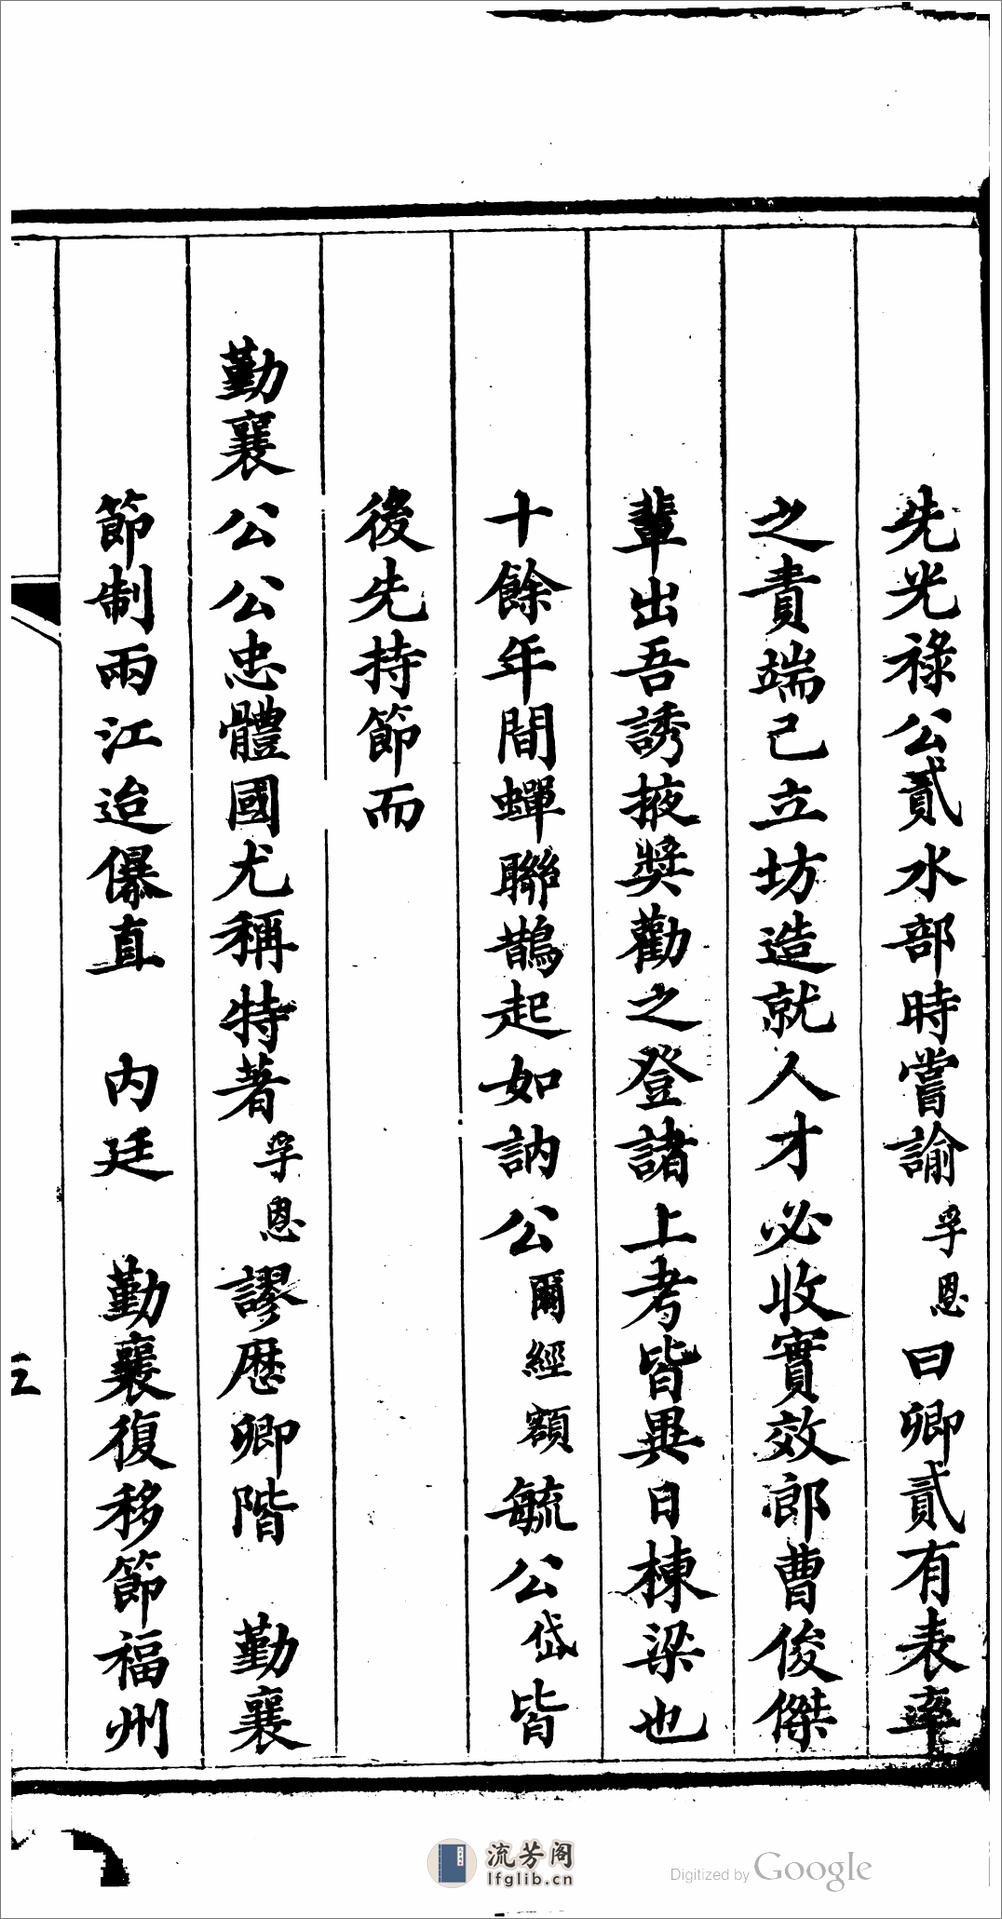 先光祿公貳水部時嘗諭孚恩曰卿貳有表率
之責端己立坊造就人才必收實效郎曹俊傑
輩出吾誘掖獎勸之登諸上考皆異日棟梁也
十餘年間蟬聯鵲起如訥公爾經額毓公岱皆
後先持節而
勤襄公公忠體國尤稱特著孚恩謬歷卿階 勤襄
節制兩江迨儤直 內廷 勤襄復移節福州
三
流芳阁
lfglib.cn
Digitized by Google